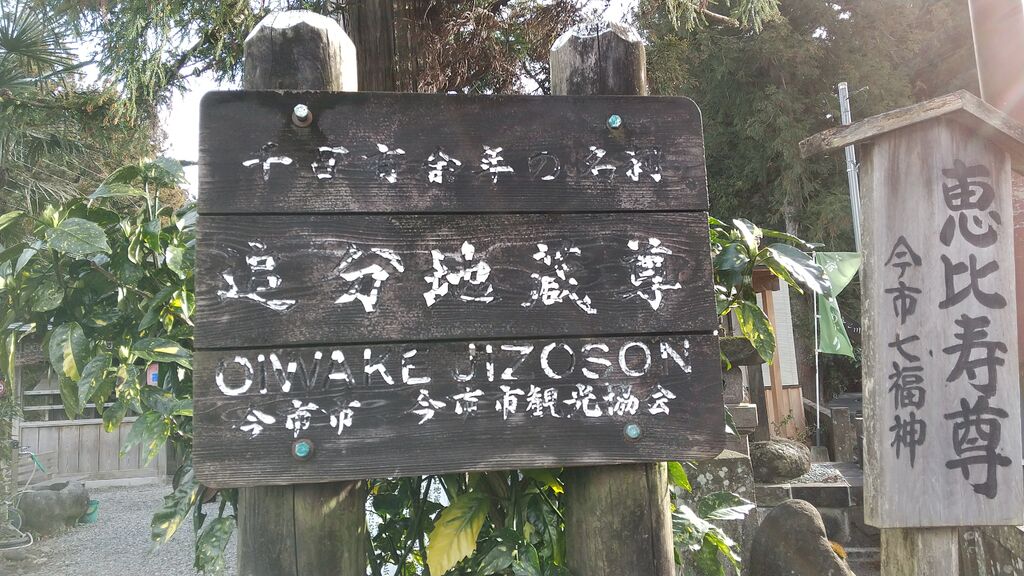 千百有余年の名刹
追分地蔵尊
OIWAKE JIZOSON
今市市 今市市観光協会
恵比寿尊
今市七福神